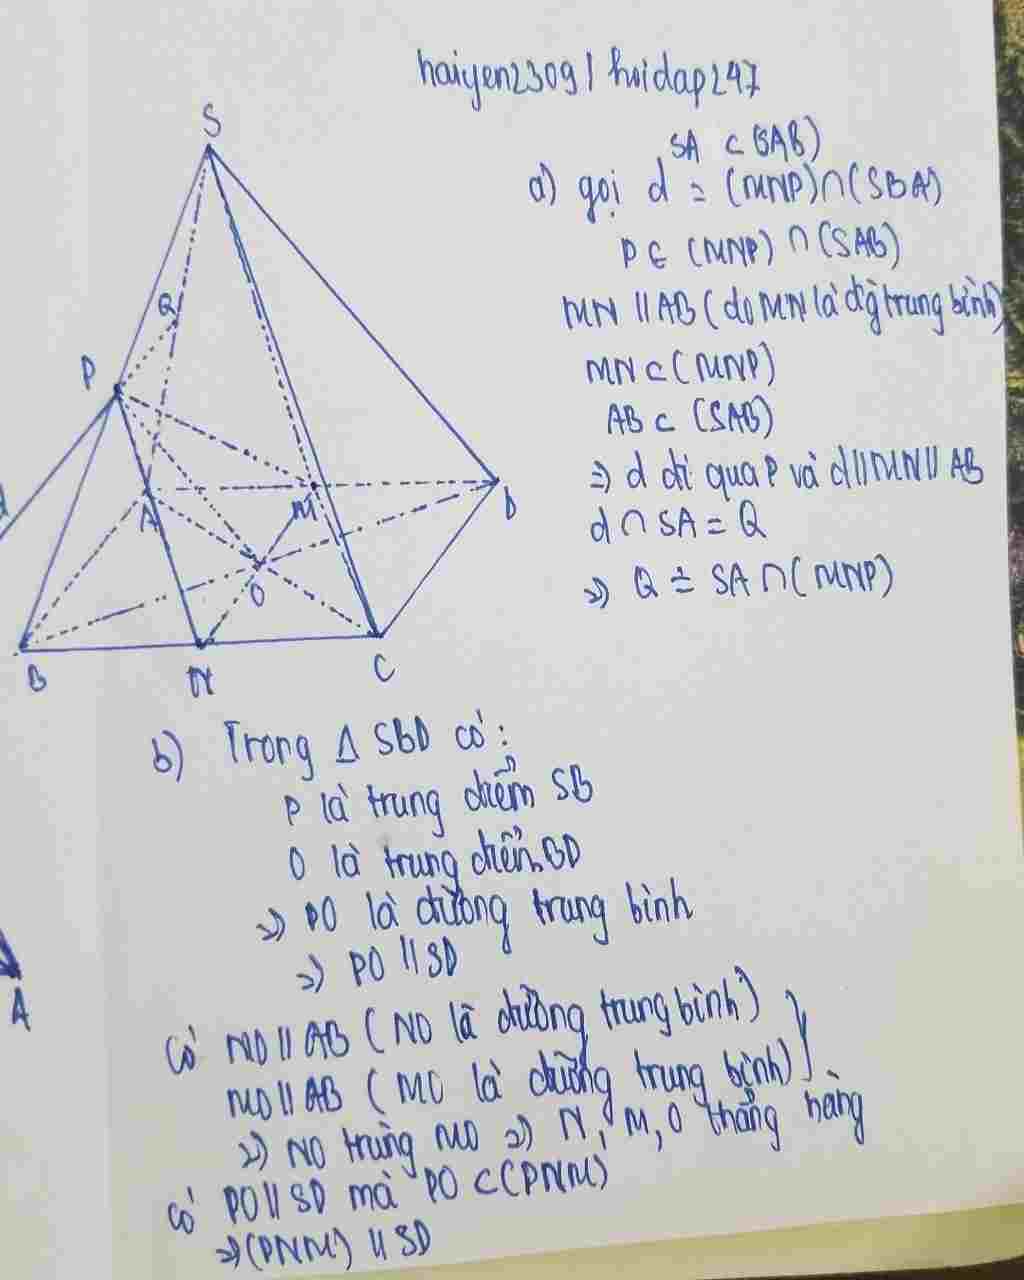 haiyen2309 / hoidap247
S
SA ⊂ (SAB)
a) gọi d = (MNP) ∩ (SBA)
P ∈ (MNP) ∩ (SAB)
MN // AB (do MN là đg trung bình)
MN ⊂ (MNP)
AB ⊂ (SAB)
=> d đi qua P và d // MN // AB
d ∩ SA = Q
=> Q = SA ∩ (MNP)
Q
P
d
A
M
D
O
B
N
C
b) Trong Δ SBD có:
P là trung điểm SB
O là trung điểm BD
=> PO là đường trung bình
=> PO // SD
A
Có NO // AB (NO là đường trung bình)
MO // AB (MO là đường trung bình)
=> NO trùng MO => N, M, O thẳng hàng
có PO // SD mà PO ⊂ (PNM)
=> (PNM) // SD